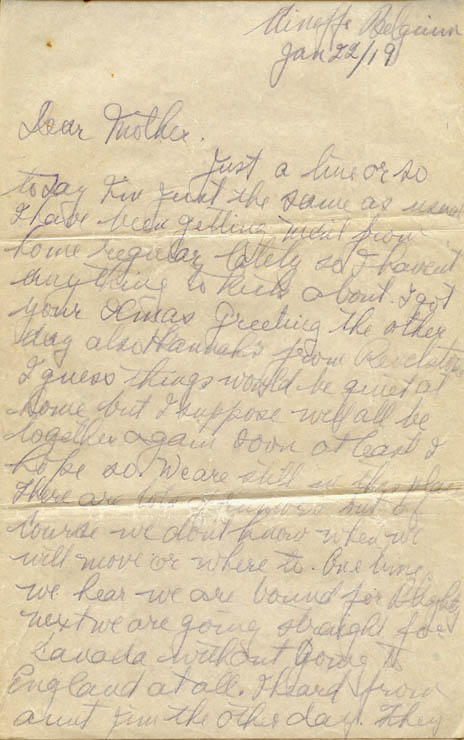 Belgium
Jan 22/19
Dear Mother.
Just a line or so
today I'm just the same as usual
I have been getting mail from
home regular lately so I havent
anything to kick about. I got
your Xmas Greeting the other
day also Hannah's from Revelstoke
I guess things would be quiet at
home but I suppose we'll all be
together again soon at least I
hope so. We are still in this place
There are lots of rumors but of
course we dont know when we
will move or where to. One time
we hear we are bound for Blighty
next we are going straight for
Canada without going to
England at all. I heard from
aunt Jim the other day. They